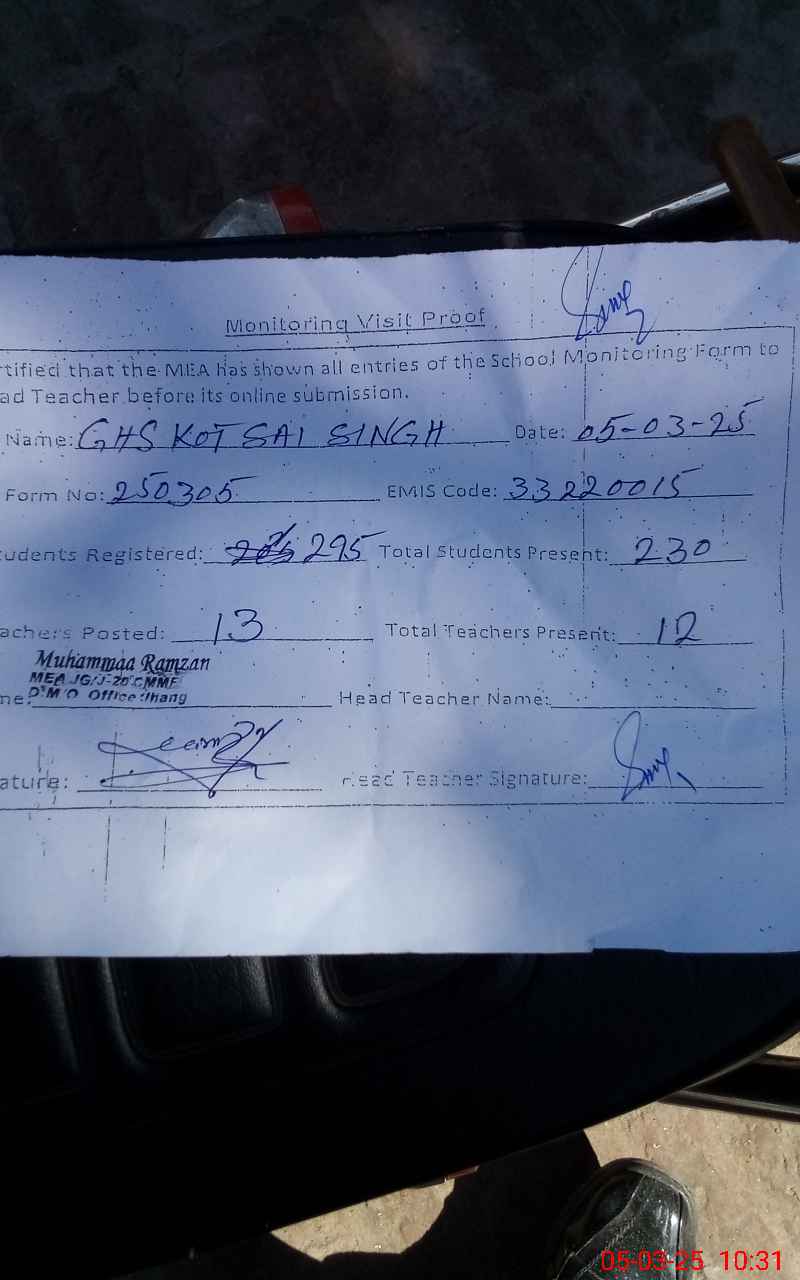 Monitoring Visit Proof
rtified that the MEA has shown all entries of the School Monitoring Form to
ad Teacher before its online submission.
Name: GHS KOT SAI SINGH Date: 05-03-25
Form No: 250305 EMIS Code: 33220015
udents Registered: 295 Total Students Present: 230
achers Posted: 13 Total Teachers Present: 12
Muhammad Ramzan
MEA
Office Jhang
me: Head Teacher Name:
ature: Head Teacher Signature:
05-03-25 10:31